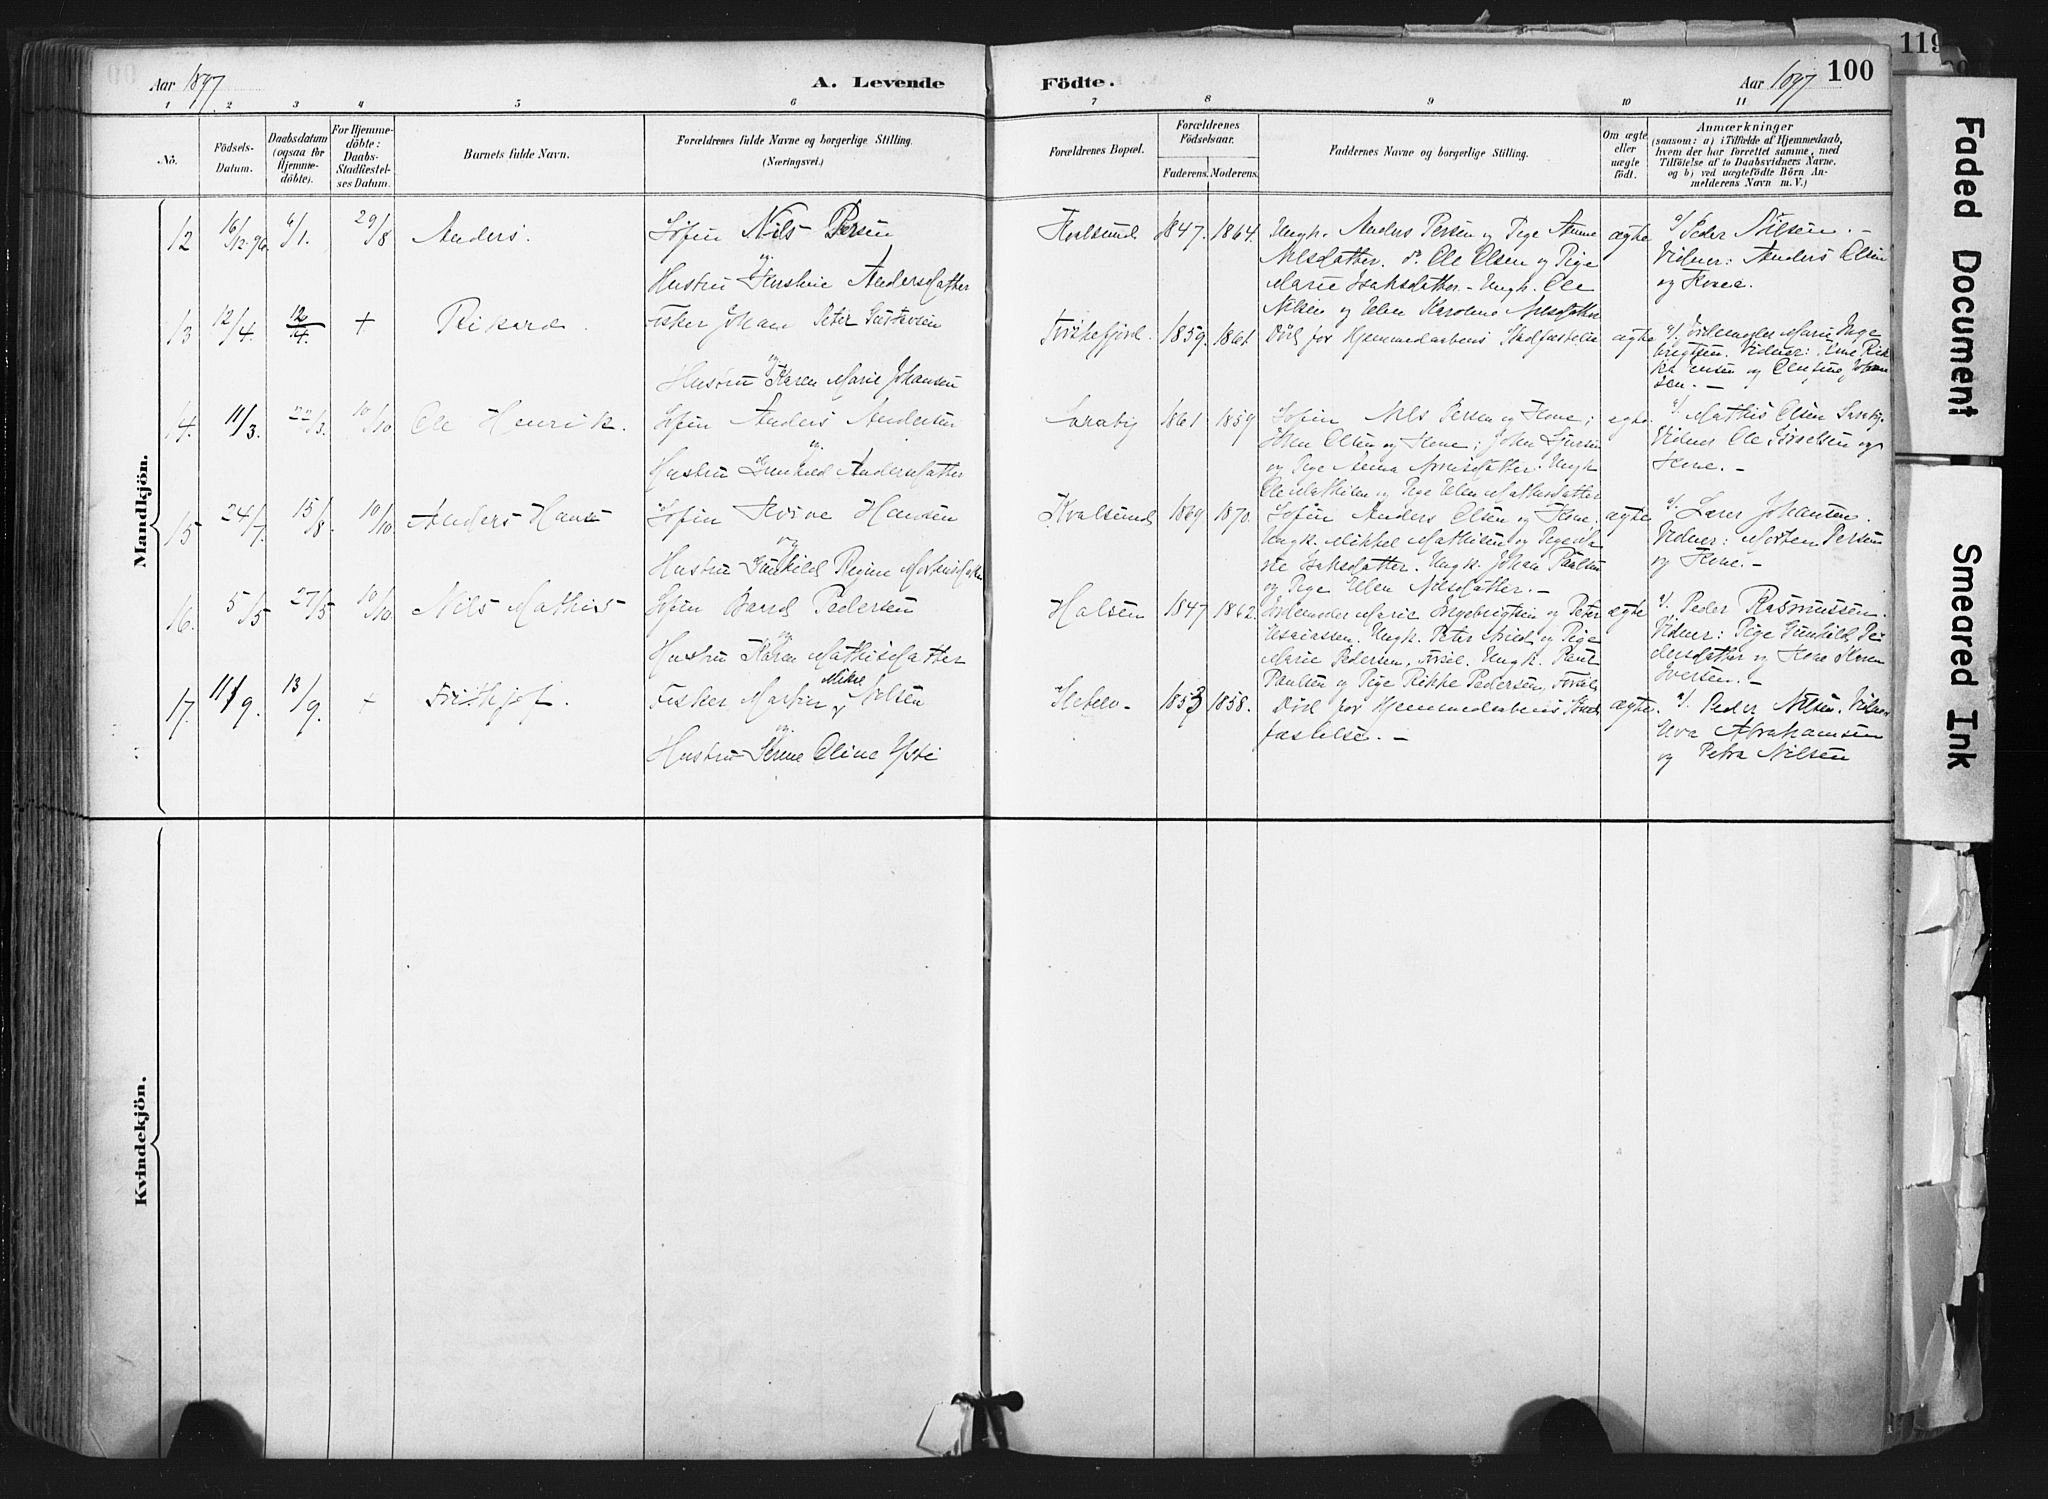 Aar 1897
A. Levende
Födte.
Aar 1897
100
119
1 2 3 4 5 6 7 8 9 10 11
No.
Födsels-
Datum.
Daabsdatum
(ogsaa for
Hjemme-
döbte).
For Hjemme-
döbte:
Daabs-
Stadfæstel-
ses Datum.
Barnets fulde Navn.
Forældrenes fulde Navne og borgerlige Stilling.
(Næringsvei.)
Forældrenes Bopæl.
Forældrenes
Födselsaar.
Faderens. Moderens.
Faddernes Navne og borgerlige Stilling.
Om ægte
eller
uægte
födt.
Anmærkninger
(saasom: a) i Tilfælde af Hjemmedaab,
hvem der har forrettet samme, med
Tilföielse af to Daabsvidners Navne,
og b) ved uægtefödte Börn An-
melderens Navn m. V.)
Mandkjön.
12 16/12-96 6/1. 29/8 Anders.
Søfin Nils Persen
og
Hustru Andersdatter
Kvalsund 1847. 1864.
Ungk. Anders Persen og Pige Anne
Nilsdatter. d. Ole Olsen og Pige
Marie Isaksdatter. Ungk. Ole
Nilsen og Elen Karoline Nilsdatter
ægte
a/ Peder Nilsen. -
Vidner: Anders Olsen
og Kone.
13 12/4. 12/4. + Rikard.
Fisker Johan Peter Gustavsen
og
Hustru Karen Marie Johansen
1859. 1861.
Död før Hjemmedaabens Stadfæstelse
ægte
a/. Jordemoder Marie Inge
brigtsen. Vidner:
og
sen. -
14. 11/3. 22/3. 10/10 Ole Henrik.
Søfin Anders Andersen
og
Hustru Gunhild Andersdatter
Saraby 1861 1859
Søfin Nils Persen og Kone;
Olsen og Kone; John
og Pige Anna Ungk
Ole Mathisen og Pige Elen Mathisdatter
ægte.
a/ Mathis Olsen Saraby.
Vidner Ole og
Kone. -
15 24/7. 15/8. 10/10. Anders Hans
Søfin Hansen
og
Hustru Gunhild Regine Mortensdatter
Kvalsund 1869 1870.
Søfin Anders Olsen og Kone.
Ungk. Mikkel Mathisen og Pige Ma
rie Isaksdatter. Ungk. Johan Paulsen
og Pige Elen Nilsdatter. -
ægte
a/. Lærer Johansen.
Vidner: Morten Persen
og Kone. -
16. 5/5 27/5 10/10. Nils Mathis
Søfin Baard Pedersen
og
Hustru Karen Mathisdatter
Halsen 1847 1862.
Jordemoder Marie Ingebrigtsen og Peter
Esaiassen. Ungk. Peter og Pige
Marie Pedersen, Ungk. Paul
Paulsen og Pige Rikke Pedersen,
ægte
a/. Peder Rasmussen.
Vidner: Pige Gunhild Pe
dersdatter og Kone Karen
Iversen. -
17. 11/9. 13/9. + Frithjof.
Fisker Martin Nilsen
og
Hustru Serine Oline
1853 1858.
Död før Hjemmedaabens Stad
fæstelse. -
ægte.
a/. Peder Nilsen. Vidner
Abrahamsen
og Petra Nilsen
Kvindekjön.
Faded Document
Smeared Ink